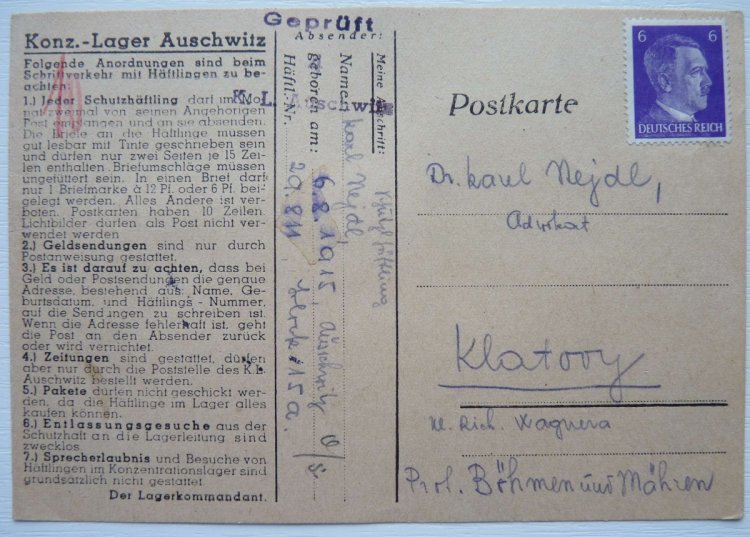 Geprüft
Konz.-Lager Auschwitz
Folgende Anordnungen sind beim
Schriftverkehr mit Häftlingen zu be-
achten:
1.) Jeder Schutzhäftling darf im Mo-
nat zweimal von seinen Angehörigen
Post empfangen und an sie absenden.
Die Briefe an die Häftlinge müssen
gut lesbar mit Tinte geschrieben sein
und dürfen nur zwei Seiten je 15 Zei-
len enthalten. Briefumschläge müssen
ungefüttert sein. In einen Brief darf
nur 1 Briefmarke à 12 Pf. oder 6 Pf. bei-
gelegt werden. Alles Andere ist ver-
boten. Postkarten haben 10 Zeilen.
Lichtbilder dürfen als Post nicht ver-
wendet werden.
2.) Geldsendungen sind nur durch
Postanweisung gestattet.
3.) Es ist darauf zu achten, dass bei
Geld oder Postsendungen die genaue
Adresse, bestehend aus: Name, Ge-
burtsdatum, und Häftlings - Nummer,
auf die Sendungen zu schreiben ist.
Wenn die Adresse fehlerhaft ist, geht
die Post an den Absender zurück
oder wird vernichtet.
4.) Zeitungen sind gestattet, dürfen
aber nur durch die Poststelle des K.L.
Auschwitz bestellt werden.
5.) Pakete dürfen nicht geschickt wer-
den, da die Häftlinge im Lager alles
kaufen können.
6.) Entlassungsgesuche aus der
Schutzhaft an die Lagerleitung sind
zwecklos.
7.) Sprecherlaubnis und Besuche von
Häftlingen im Konzentrationslager sind
grundsätzlich nicht gestattet.
Der Lagerkommandant.
K. L. Auschwitz
Absender:
Meine Anschrift:
Name: Karl Nejdl,
geboren am: 6.2.1915, Auschwitz O/S.
Häftl.-Nr. 29.811 Block 15a.
Postkarte
6 6
DEUTSCHES REICH
Dr. Karel Nejdl,
Advokat
Klatovy
Rich. Wagnera
Prot. Böhmen und Mähren